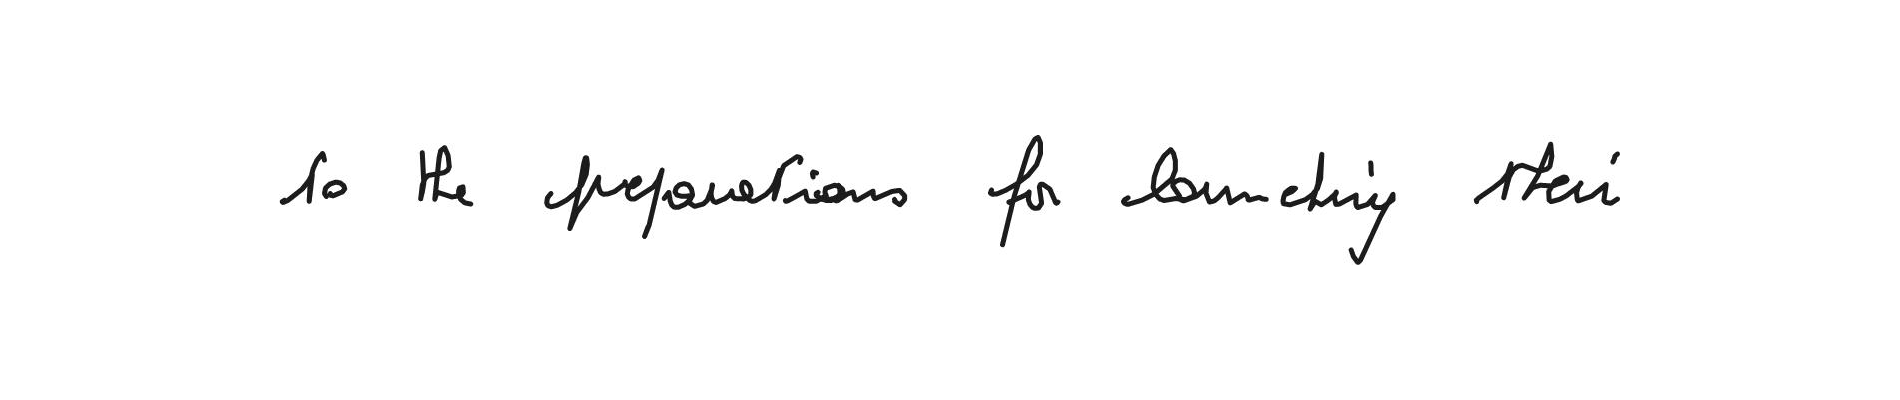 to the preparations for launching their